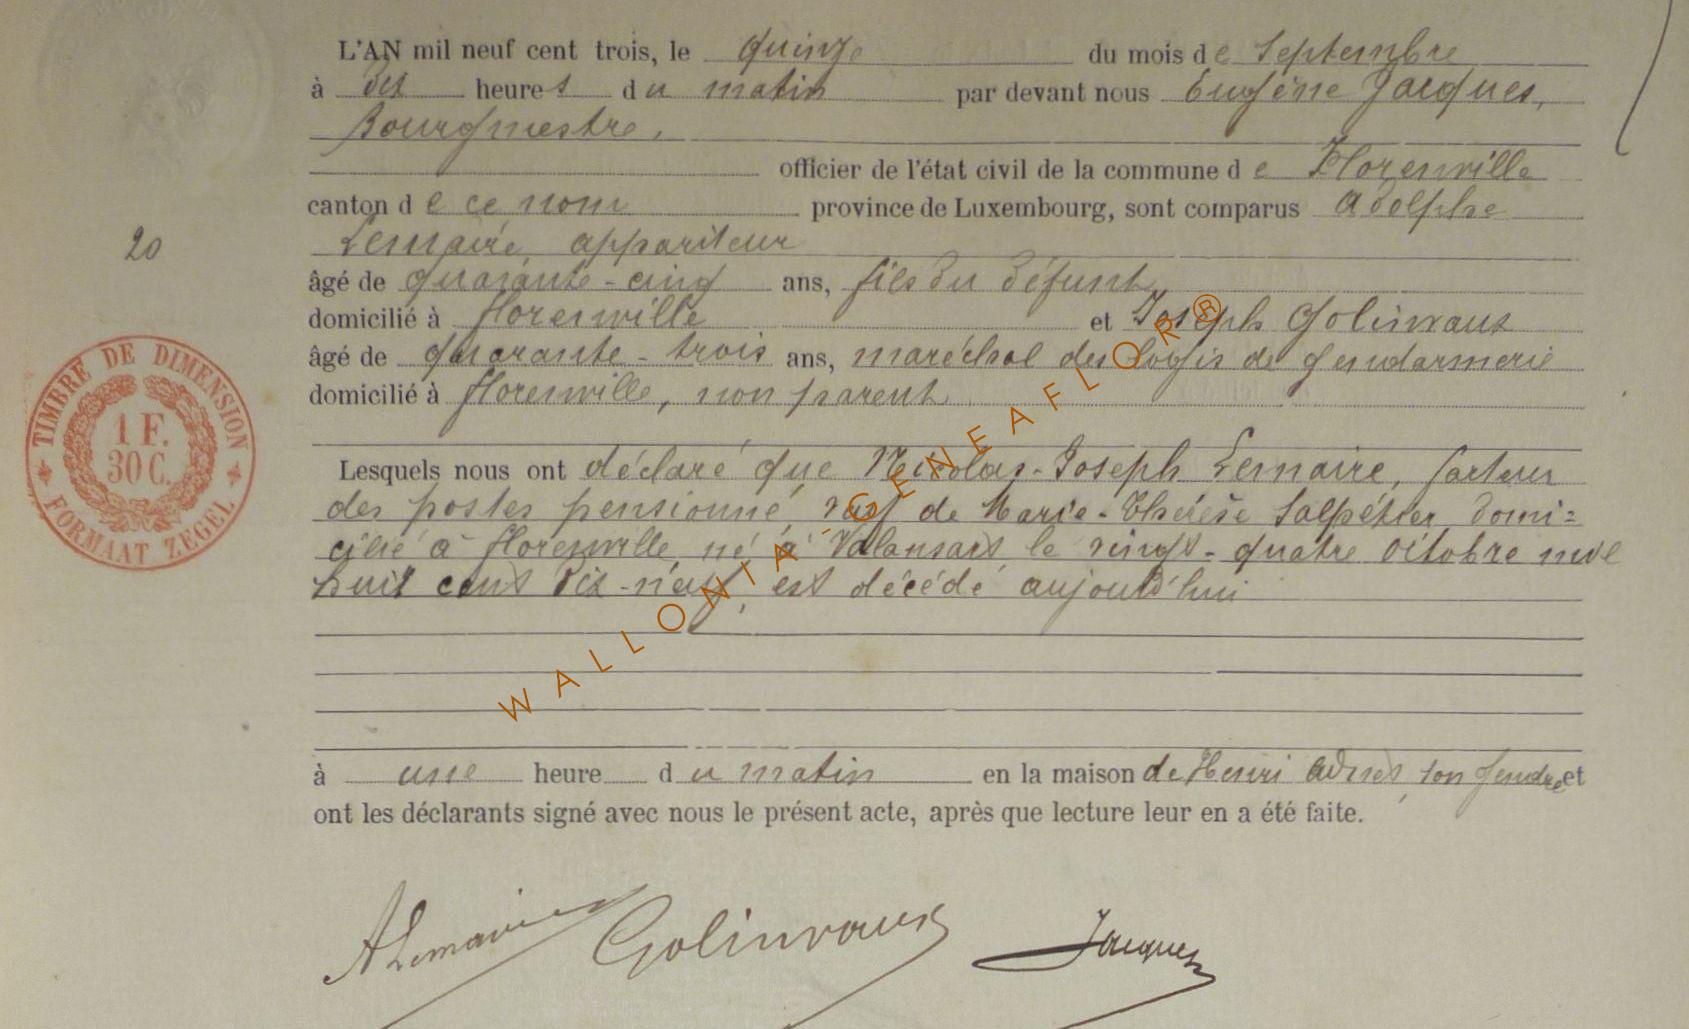 L'AN mil neuf cent trois, le quinze du mois de Septembre
à dix heures du matin par devant nous Eugène Jacques,
Bourgmestre,
officier de l'état civil de la commune de Florenville
canton de ce nom province de Luxembourg, sont comparus Adolphe
20
Lemaire, appariteur
âgé de quarante-cinq ans, fils du défunt
domicilié à florenville et Joseph Golinvaux
âgé de quarante-trois ans, maréchal des logis de gendarmerie
domicilié à florenville, non parent
TIMBRE DE DIMENSION
1 F.
30 C.
FORMAAT ZEGEL
Lesquels nous ont déclaré que Nicolas-Joseph Lemaire, facteur
des postes pensionné, veuf de Marie-Thérèse Salpétier, domi=
cilié à florenville, né à Valansart le vingt-quatre octobre mil
huit cent dix-neuf, est décédé aujourd'hui
WALLONIA-GENEAFLOR®
à une heure du matin en la maison de Henri Adnet, son gendre et
ont les déclarants signé avec nous le présent acte, après que lecture leur en a été faite.
A Lemaire Golinvaux Jacques